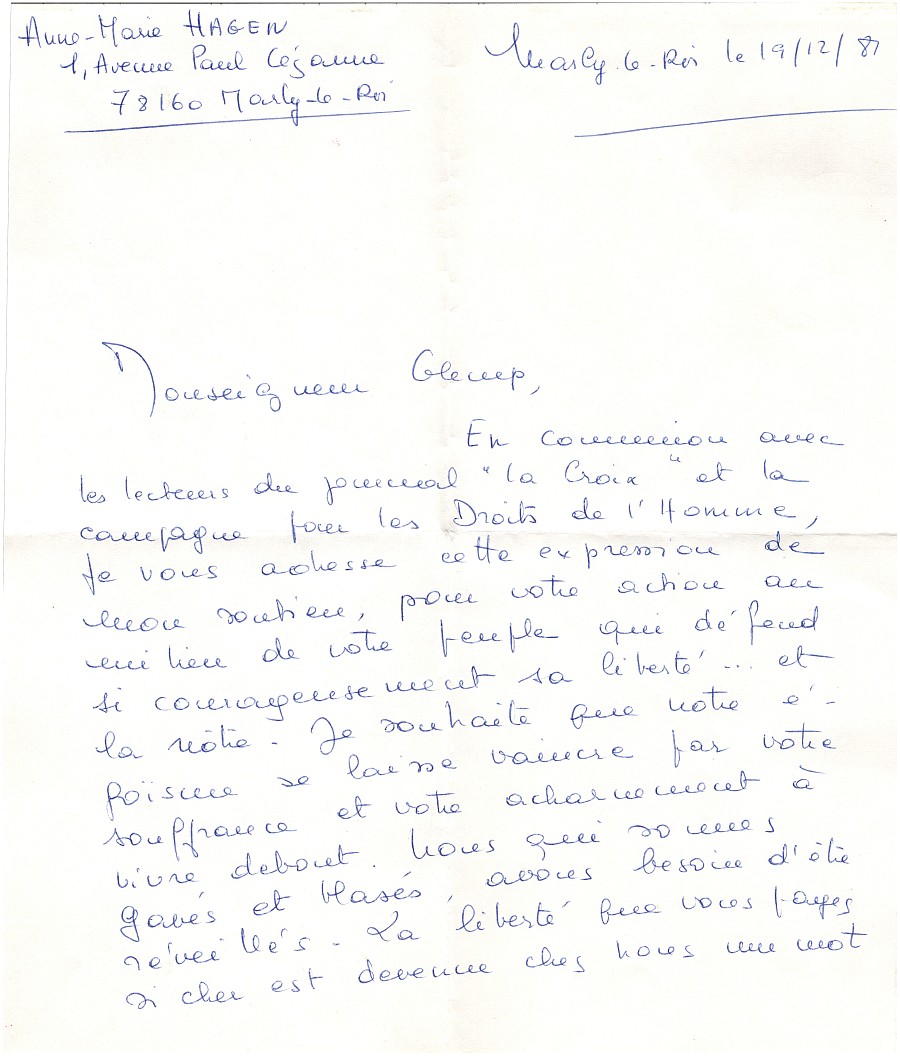 Anne-Marie HAGEN
1, Avenue Paul Cézanne
78160 Marly-le-Roi
Marly-le-Roi le 19/12/81
Monseigneur Glemp,
En communion avec
les lecteurs du journal "la Croix" et la
campagne pour les Droits de l'Homme,
je vous adresse cette expression de
mon soutien, pour votre action au
milieu de votre peuple qui défend
si courageusement sa liberté... et
la nôtre. Je souhaite que notre é-
goïsme se laisse vaincre par votre
souffrance et votre acharnement à
vivre debout. Nous qui sommes
gavés et blasés, avons besoin d'être
réveillés. La liberté que vous payez
si cher est devenue chez nous un mot